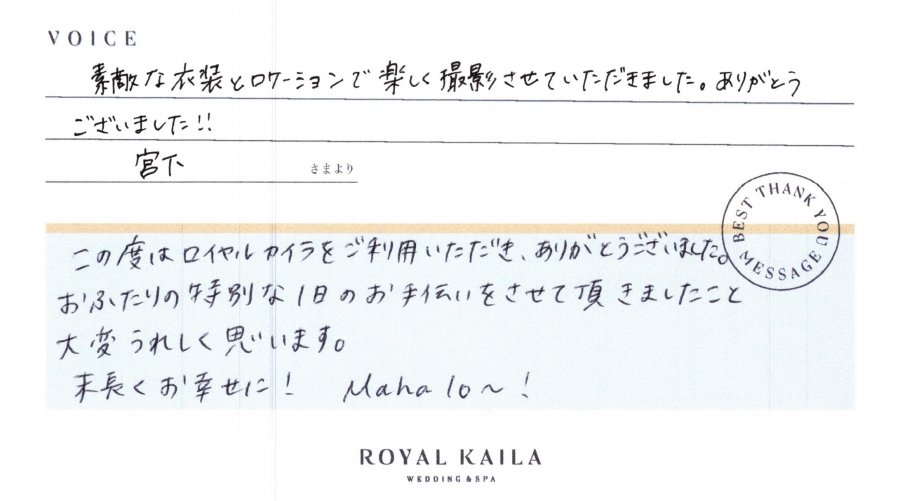 VOICE
素敵な衣装とロケーションで楽しく撮影させていただきました。ありがとう
ございました!!
宮下 さまより
BEST THANK YOU MESSAGE
この度はロイヤルカイラをご利用いただき、ありがとうございました。
おふたりの特別な1日のお手伝いをさせて頂きましたこと
大変うれしく思います。
末長くお幸せに! Mahalo〜!
ROYAL KAILA
WEDDING & SPA